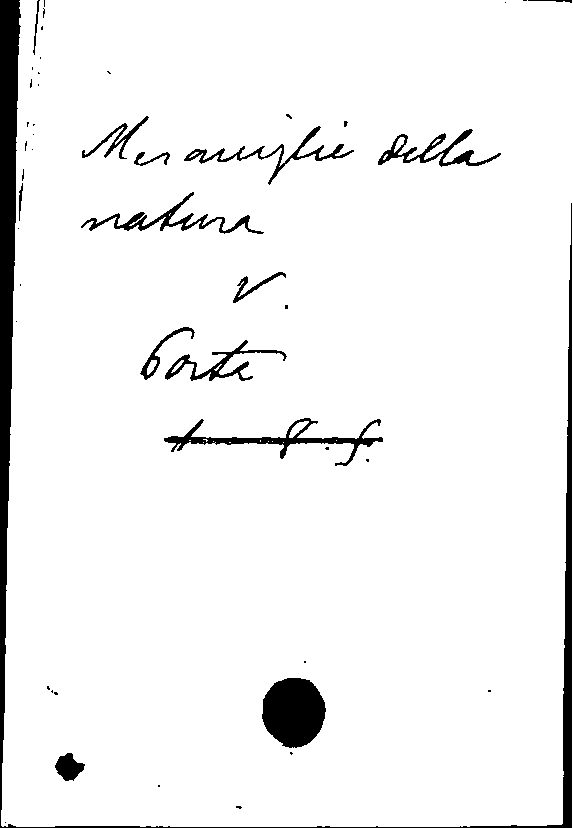 Meraviglie della
natura
V.
Porte